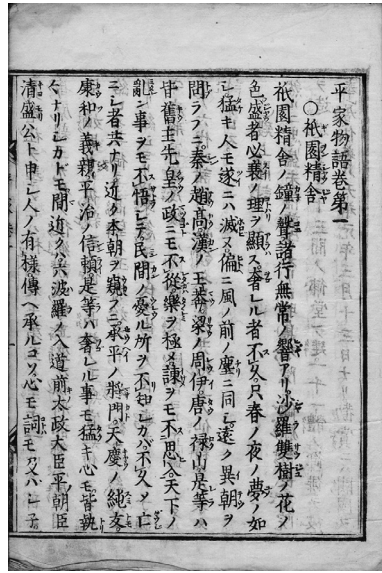 平家物語卷第一
〇祇園精舎
祇園精舎ノ鐘ノ聲諸行無常ノ響アリ沙羅雙樹ノ花ノ
色盛者必義ノ理ヲ顯ス奢レル者不久只春ノ夜ノ夢ノ如
シ猛キ人モ遂ニハ滅ヌ偏ニ風ノ前ノ塵ニ同シ遠ク異朝ヲ
問ラフニ秦ノ趙高漢ノ王莽梁ノ周伊唐ノ禄山是等ハ
皆舊主先皇ノ政ニモ不從樂ヲ極メ諫ヲモ不思入天下ノ
乱ン事ヲモ不悟シテ民間ノ憂ル所ヲ不知シカバ不久シテ亡
ニシ者共ナリ近ク本朝ヲ窺フニ承平ノ將門天慶ノ純友
康和ノ義親平治ノ信頼是等ハ奢レル事モ猛キ心モ皆執
〱ナリシカドモ間近クハ六波羅ノ入道前太政大臣平朝臣
清盛公ト申シ人ノ有様傳ヘ承ルコソ心モ詞モ及バレ子